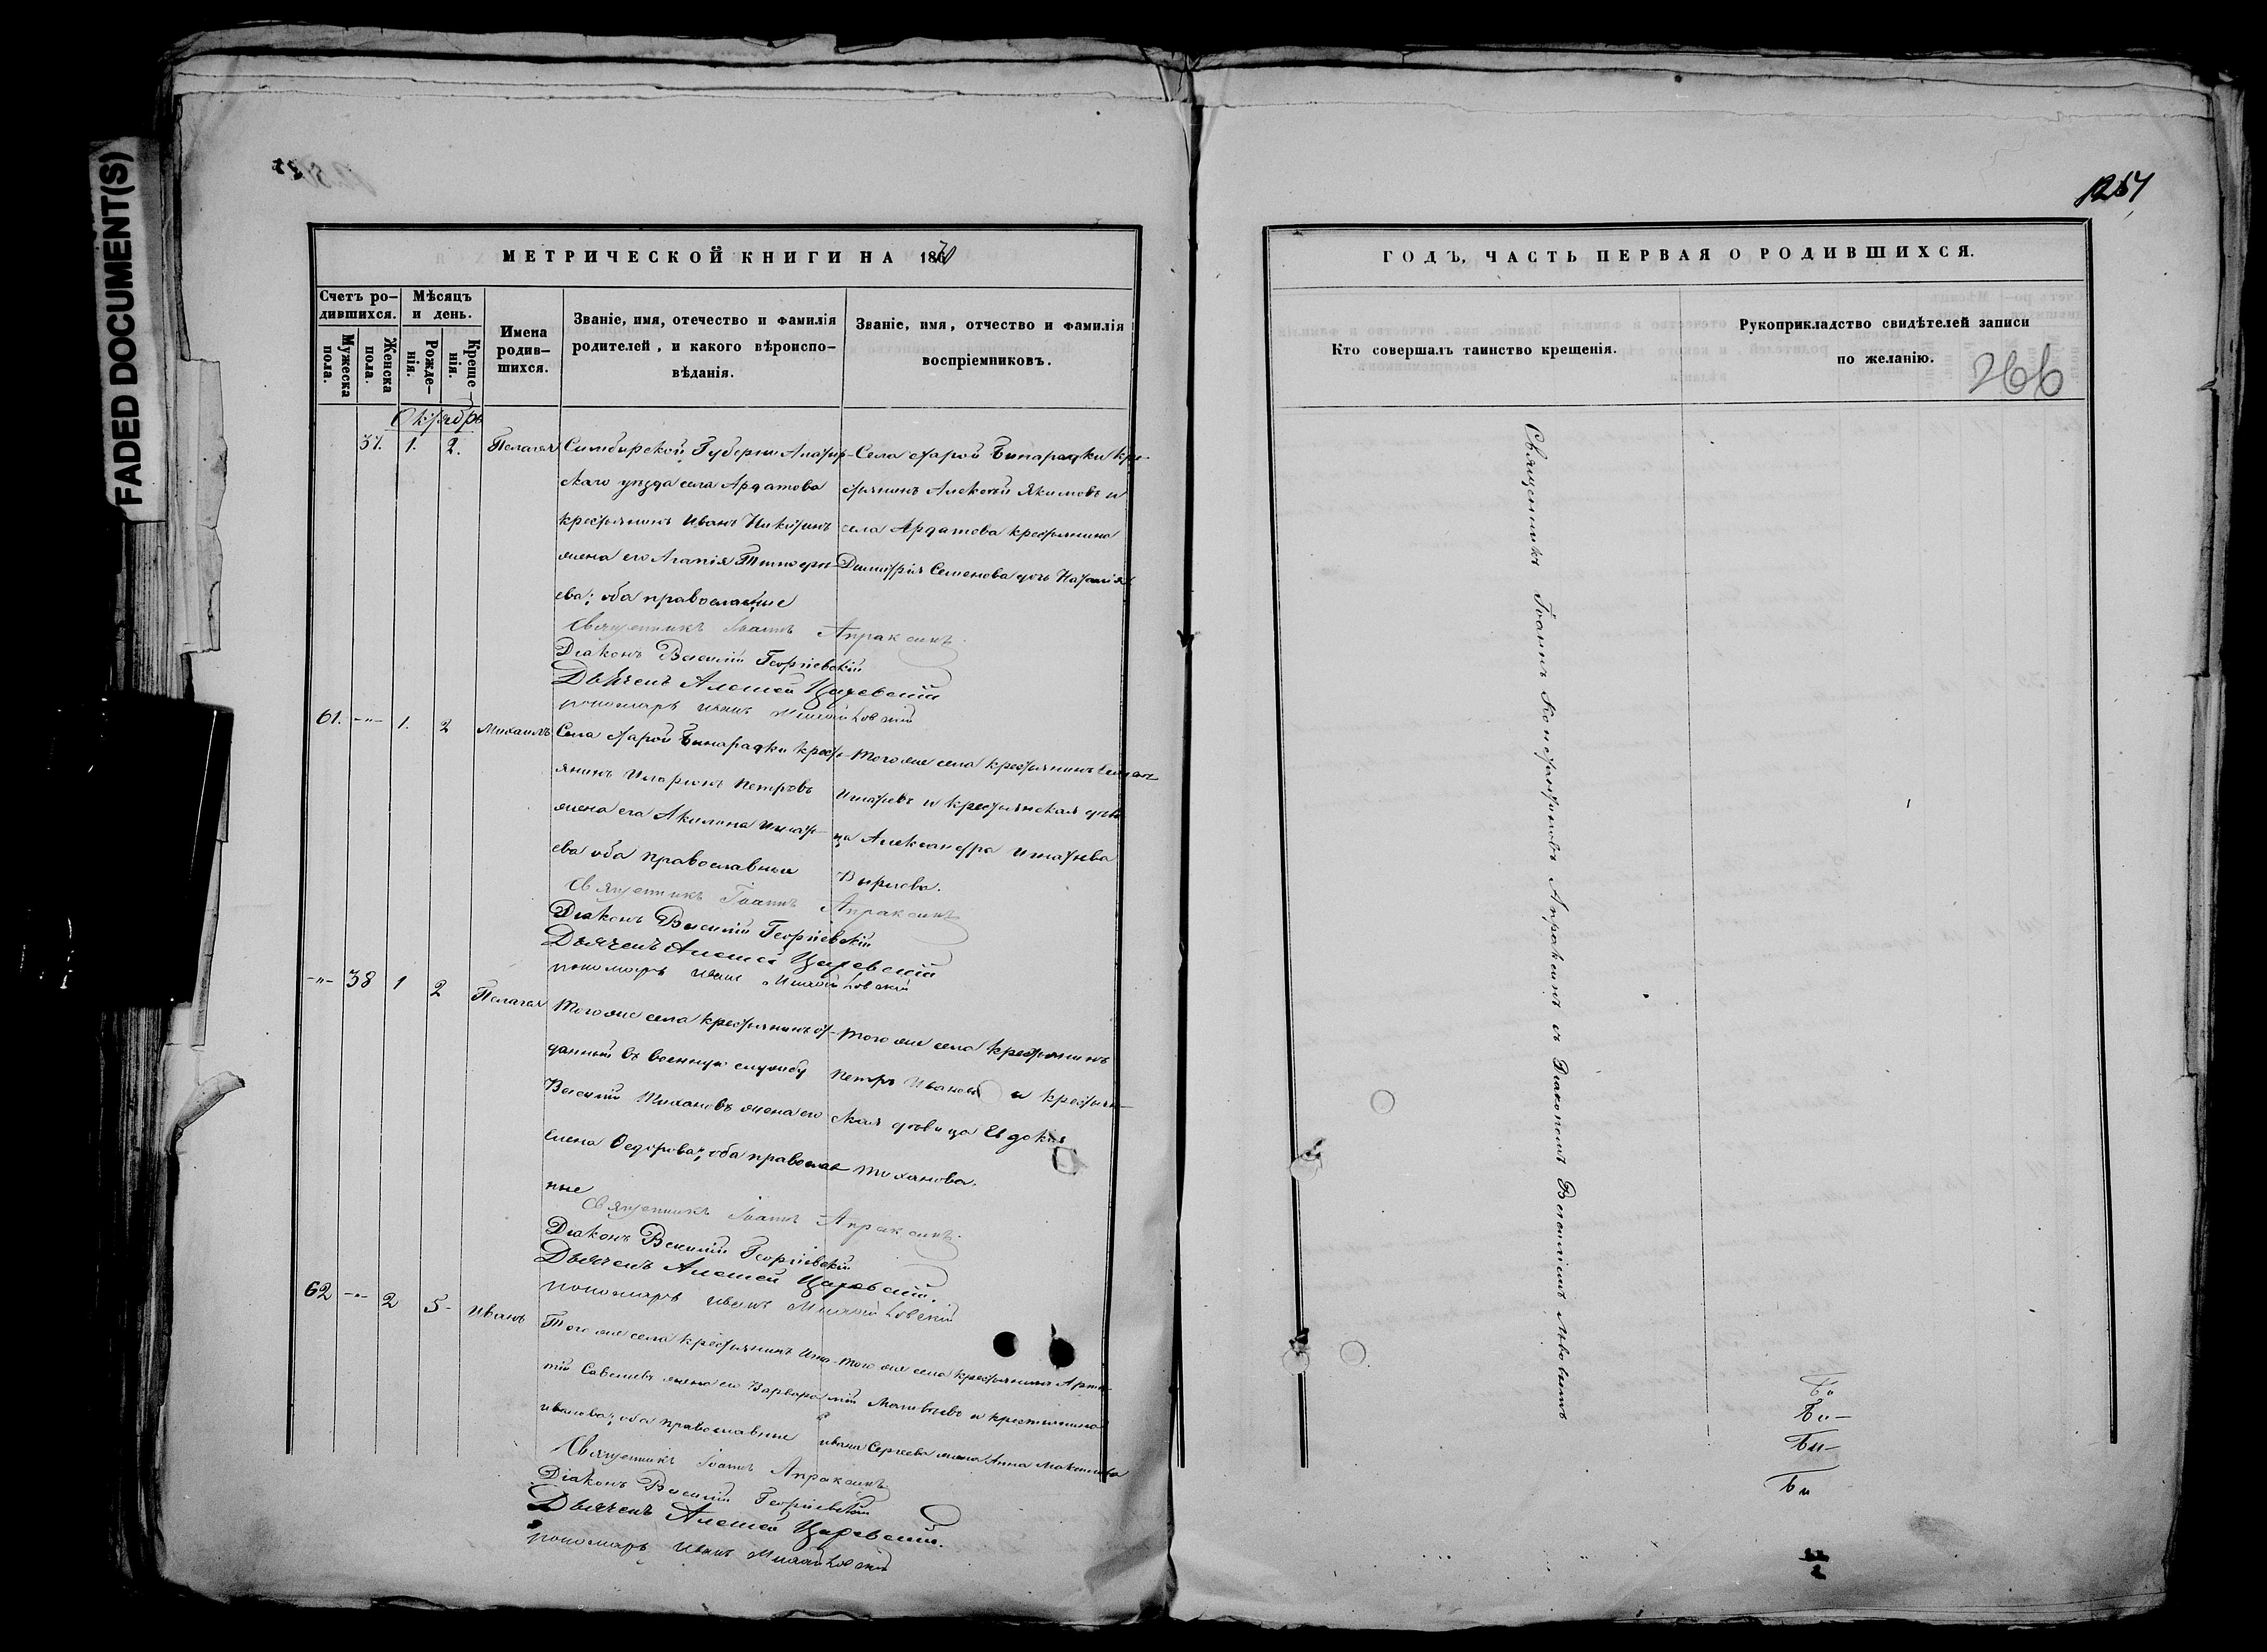 FADED DOCUMENT(S)
1257
МЕТРИЧЕСКОЙ КНИГИ НА 1870
Счетъ ро-
дившихся.
Мужеска
пола.
Женска
пола.
Мѣсяцъ
и день.
Рожде-
нія.
Креще
нія.
Имена
родив-
шихся.
Званіе, имя, отечество и фамилія
родителей, и какого вѣроиспо-
вѣданія.
Званіе, имя, отчество и фамилія
воспріемниковъ.
Октябрь
37. 1. 2. Пелагея
Симбирской Губерни Алатыр-
скаго уѣзда села Ардатова
крестьянинъ Иванъ Никитинъ
жена его Агапія Тимофе
ева; оба православные
Села старой Бинарадки кре-
стьянинъ Алексѣй Якимовъ и
села Ардатова крестьянина
Димитрія Семенова дочь Наталія
Священникъ Іоаннъ Апраксинъ.
Діаконъ Василій Георгіевскій
Дьячекъ Алексей Царевскій
пономарь Иванъ
61. -"- 1. 2 Михаилъ
Села старой Бинарадки крест-
янинъ Иларіонъ Петровъ
жена его Акилина Игнать-
ева оба православные
Того же села крестьянинъ
Игнатьевъ и крестьянская дѣви
ца Александра Игнатьева
Священникъ Іоаннъ Апраксинъ
Діаконъ Василій Георгіевскій
Дьячекъ Алексей Царевскій
пономарь Иванъ
-"- 38 1 2 Пелагея
Того же села крестьянинъ от-
данный въ военную службу
Василій Тихановъ жена его
Елена Федорова; оба православ
ные
Того же села крестьянинъ
Петръ Ивановъ и крестьян-
ская дѣвица Евдокія
Тиханова.
Священникъ Іоаннъ Апраксинъ.
Діаконъ Василій Георгіевскій
Дьячекъ Алексей Царевскій.
пономарь Иванъ
62 -"- 2 5- Иванъ
Того же села крестьянинъ Игна-
тій Савельевъ жена его Варвара
иванова; оба православные
Того же села крестьянинъ Арте-
мій Матвѣевъ и крестьянина
ивана Сергеева жена Анна Максимова
Священникъ Іоаннъ Апраксинъ
Діаконъ Василій Георгіевскій
Дьячекъ Алексей Царевскій.
пономарь Иванъ
ГОДЪ, ЧАСТЬ ПЕРВАЯ О РОДИВШИХСЯ.
Кто совершалъ таинство крещенія.
Рукоприкладство свидѣтелей записи
по желанію.
266
Священникъ Іоаннъ Константиновъ Апраксинъ съ Діакономъ Василіемъ Львовымъ